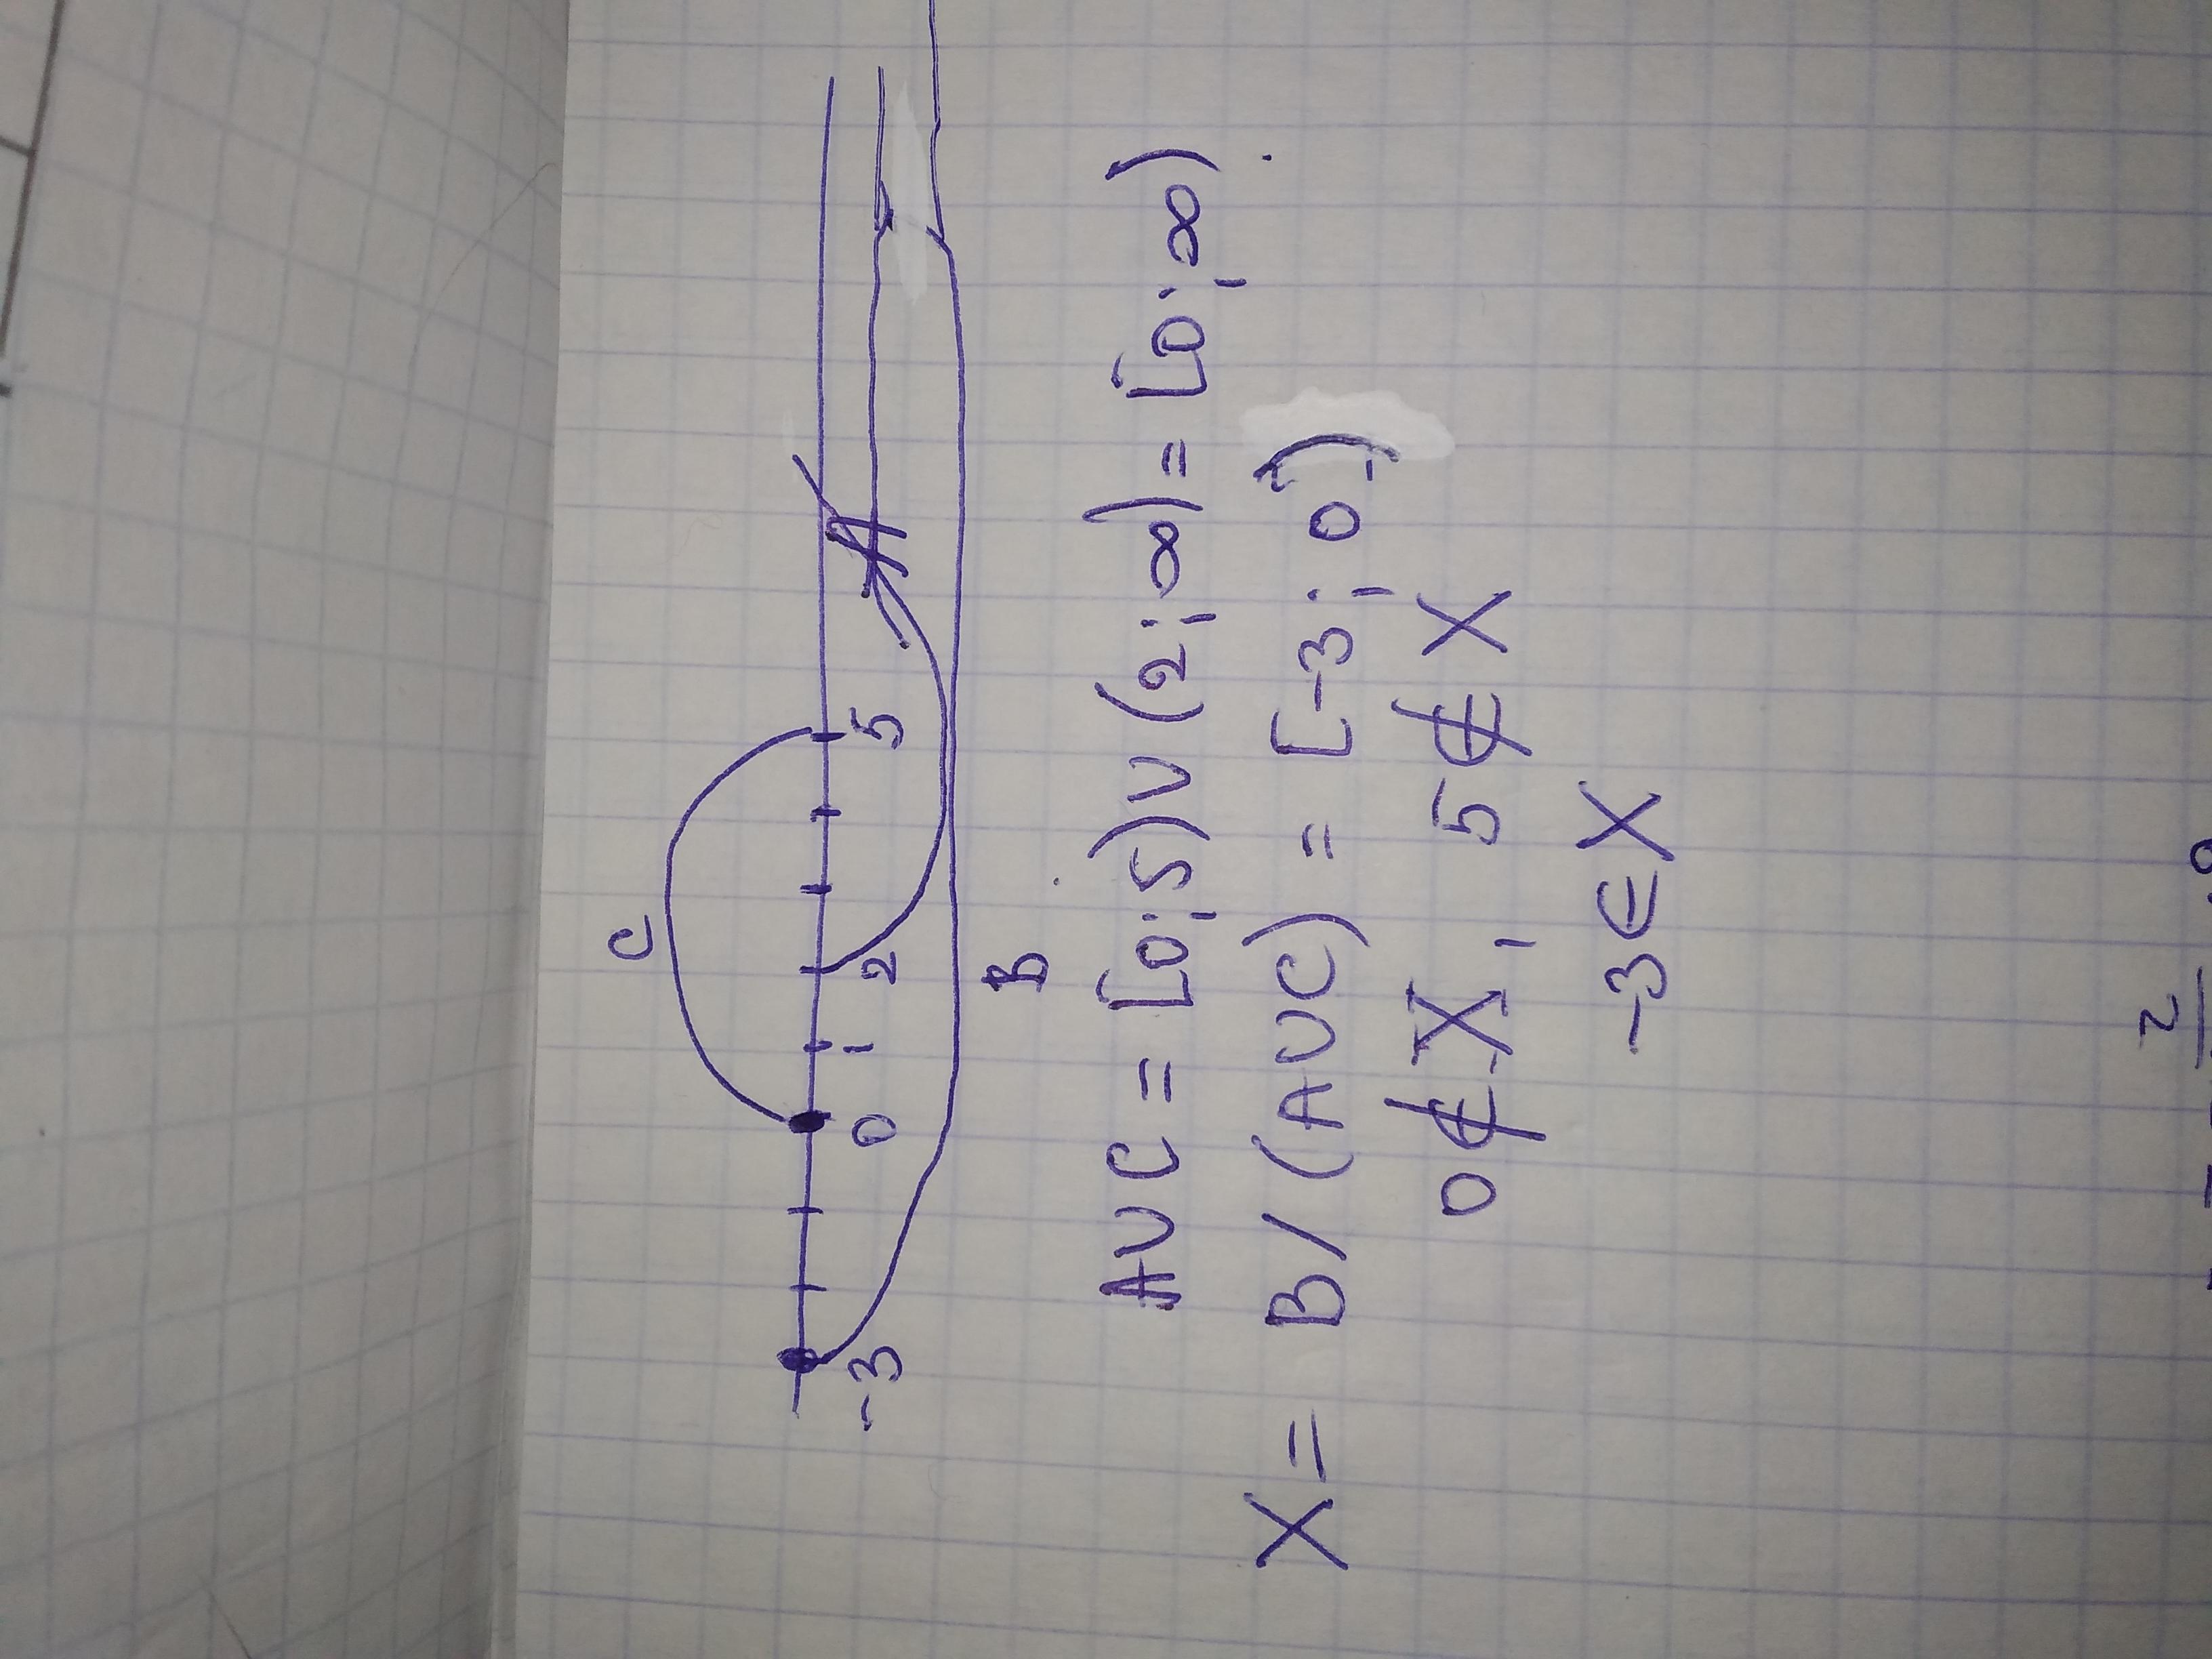 C
-3 0 1 2 5 A
B
A∪C = [0;5)∪(2;∞) = [0;∞)
X = B/(A∪C) = [-3;0)
0∉X, 5∉X
-3∈X
2